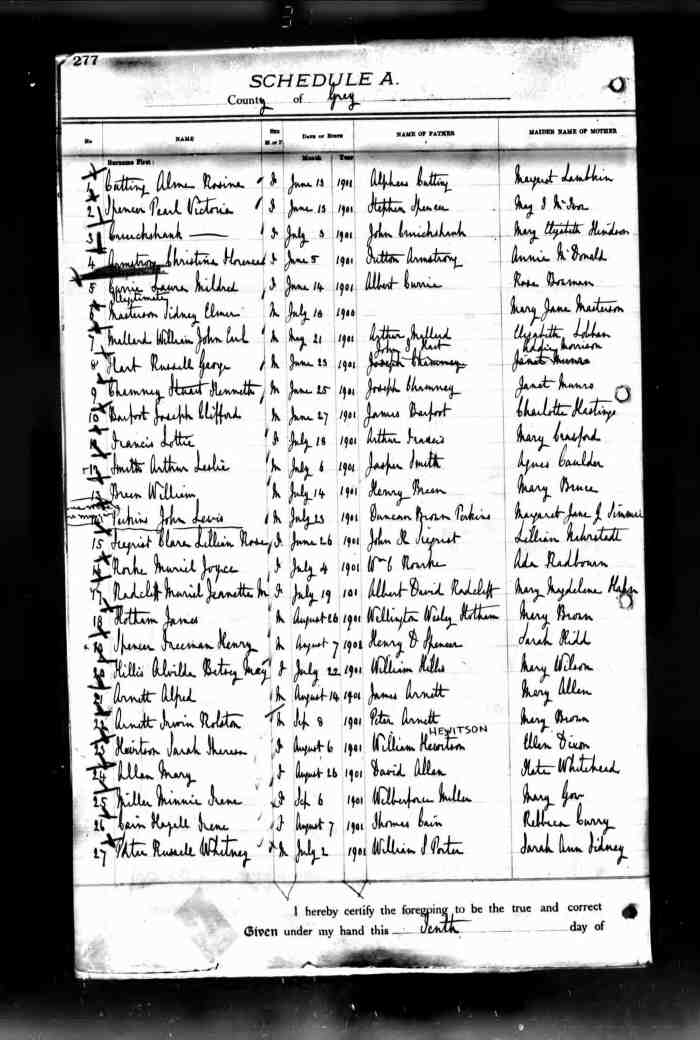 277
SCHEDULE A.
County of Grey
No NAME Sex M. or F DATE OF BIRTH NAME OF FATHER MAIDEN NAME OF MOTHER
Surname First: Month Year
1 Cutting Alma Rosina F June 13 1901 Alpheus Cutting Margaret Lambkin
2 Spencer Pearl Victoria F June 13 1901 Stephen Spencer May J McIvor
3 Cruickshank F July 3 1901 John Cruickshank Mary Elizabeth Henderson
4 Armstrong Christina Florence F June 5 1901 Dutton Armstrong Annie McDonald
5 Currie Laura Mildred F June 14 1901 Albert Currie Rose Bowman
Illegitimate
6 Masterson Sidney Elmer M July 18 1900 Mary Jane Masterson
7 Mellard William John Earl M May 21 1901 Arthur Mellard Elizabeth
John Hart Morrison
8 Hart Russell George M June 23 1901 Joseph Chamney Janet Munro
9 Chamney Stuart Kenneth M June 25 1901 Joseph Chamney Janet Munro
10 Barfoot Joseph Clifford M June 27 1901 James Barfoot Charlotte Hastings
Francis Lottie F July 18 1901 Arthur Francis Mary
12 Smith Arthur Leslie M July 6 1901 Jasper Smith Agnes Caulder
13 Breen William M July 14 1901 Henry Breen Mary Bruce
Perkins John Lewis M July 23 1901 Duncan Brown Perkins Margaret Jane J
15 Siegrist Clara Lillian Rose F June 26 1901 John R Siegrist Lillian
Rorke Muriel Joyce F July 4 1901 Wm C Rourke Ada Radbourn
17 Radcliff Muriel Jeannette M F July 19 101 Albert David Radcliff Mary Magdelene
18 Hotham James M August 26 1901 Willington Wesley Hotham Mary Brown
Spencer Freeman Henry M August 7 1901 Henry D Spencer Sarah Kidd
Hillis Alvilda Betsey May F July 22 1901 William Hillis Mary Wilson
Arnett Alfred M August 14 1901 James Arnett Mary Allen
22 Arnett Irwin Rolston M Sep 8 1901 Peter Arnett Mary Brown
HEWITSON
23 Hewitson Sarah Theresa F August 6 1901 William Hewitson Ellen Dixon
24 Allan Mary F August 26 1901 David Allan Kate Whitehead
25 Miller Minnie Irene F Sep 6 1901 Wilberforce Miller Mary Gow
26 Cain Hazell Irene F August 7 1901 Thomas Cain Rebecca Curry
27 Porter Russell Whitney M July 2 1901 William J Porter Sarah Ann Sidney
I hereby certify the foregoing to be the true and correct
Given under my hand this Tenth day of